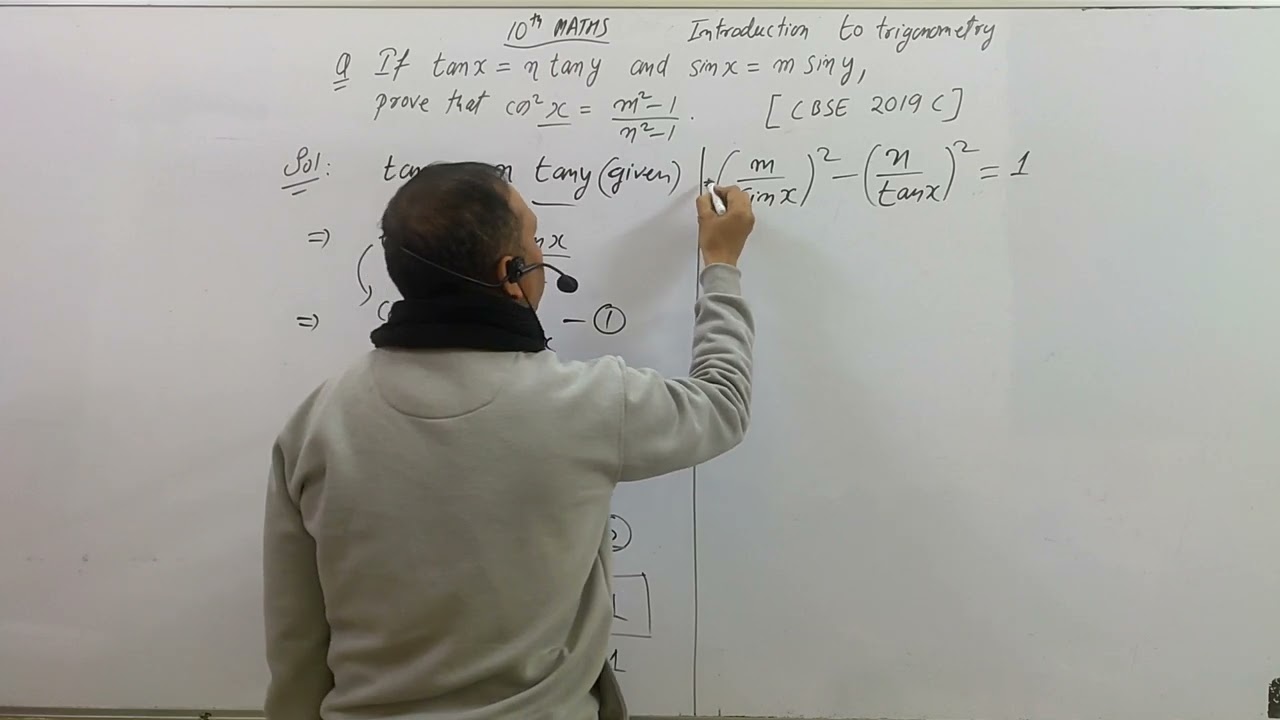 10th MATHS Introduction to trigonometry
Q If tanx = n tany and sinx = m siny,
prove that cos²x = m²-1/n²-1. [CBSE 2019 C]
Sol: tany (given)
⇒
⇒ - ①
(m/sinx)² - (n/tanx)² = 1